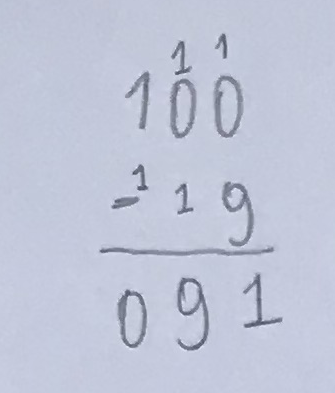 1 1
100
-¹ 19
091